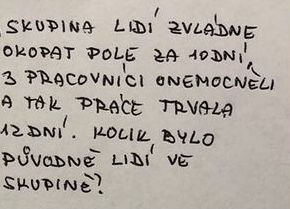 SKUPINA LIDÍ ZVLÁDNE
OKOPAT POLE ZA 10 DNÍ,
3 PRACOVNÍCI ONEMOCNĚLI
A TAK PRÁCE TRVALA
12 DNÍ. KOLIK BYLO
PŮVODNĚ LIDÍ VE
SKUPINĚ?